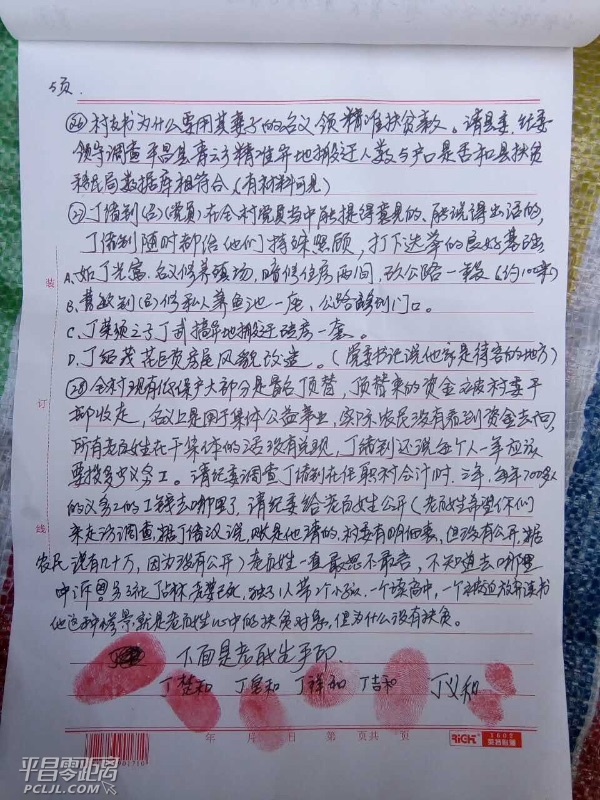 5页.
㉖村支书为什么要用其妻子的名义领精准扶贫款。请县委、纪委
领导调查平昌县青云乡精准异地搬迁人数与户口是否和县扶贫
移民局数据库相符合(有材料可见)
㉗丁绪别(含)(党员)在全村党员当中能提得意见的、能说得出话的,
丁绪别随时都给他们特殊照顾,打下选举的良好基础
A、如丁光富.名义修养殖场,暗修住房两间,砍公路一段(约100米)
B、曹数别(含)修私人养鱼池一座、公路修到门口。
C、丁荣须之子丁武搞异地搬迁砖房一套。
D、丁绍茂花巨资房屋风貌改造。(党委书记说他家是待客的地方)
㉘全村现有低保户大部分是冒名顶替,顶替来的资金被村委干
部收走,名义上是用于集体公益事业,实际农民没有看到资金去向,
所有老百姓在干集体的活没有兑现,丁绪别还说每个人一年应该
要投多少义务工。请纪委调查丁绪别在任职村会计时.三年,每年700多人
的义务工的工钱去哪里了,请纪委给老百姓公开(老百姓希望你们
来走访调查,据丁绪汉说,账是他清的,村委有明细表,但没有公开,据
农民说有几十万,因为没有公开)老百姓一直敢怒不敢言,不知道去哪里
申诉
他这种惨景,就是老百姓心中的扶贫对象,但为什么没有扶贫。
下面是老百姓手印.
丁楚和 丁星和 丁祥和 丁吉和 丁义和
年 月 日 第 页共 页
装
订
线
RiGHT
平昌零距离
PCLJL.COM